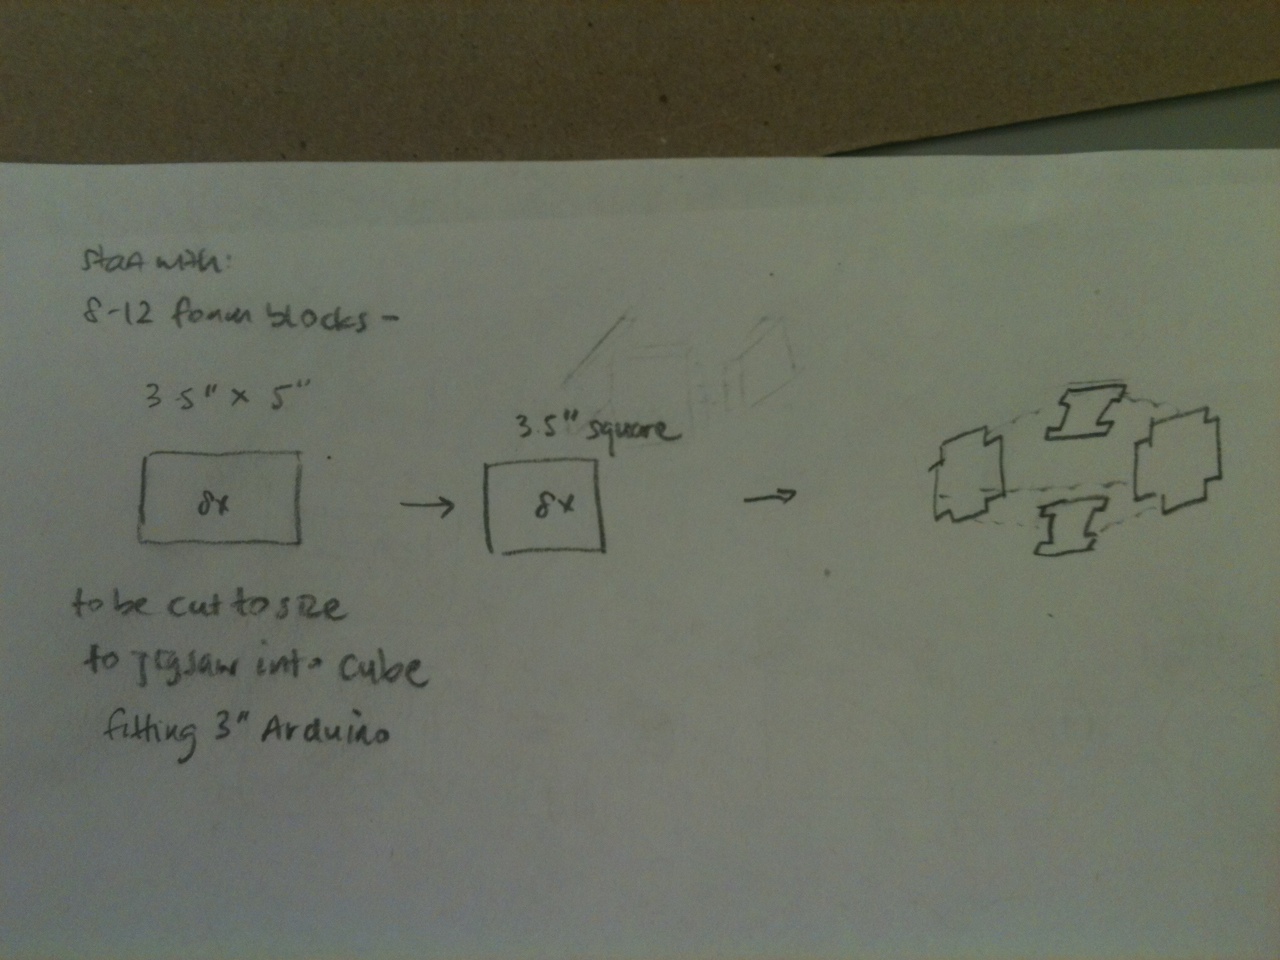 start with:
8-12 foam blocks -
3.5" x 5"
8x
3.5" square
8x
to be cut to size
to jigsaw into cube
fitting 3" Arduino